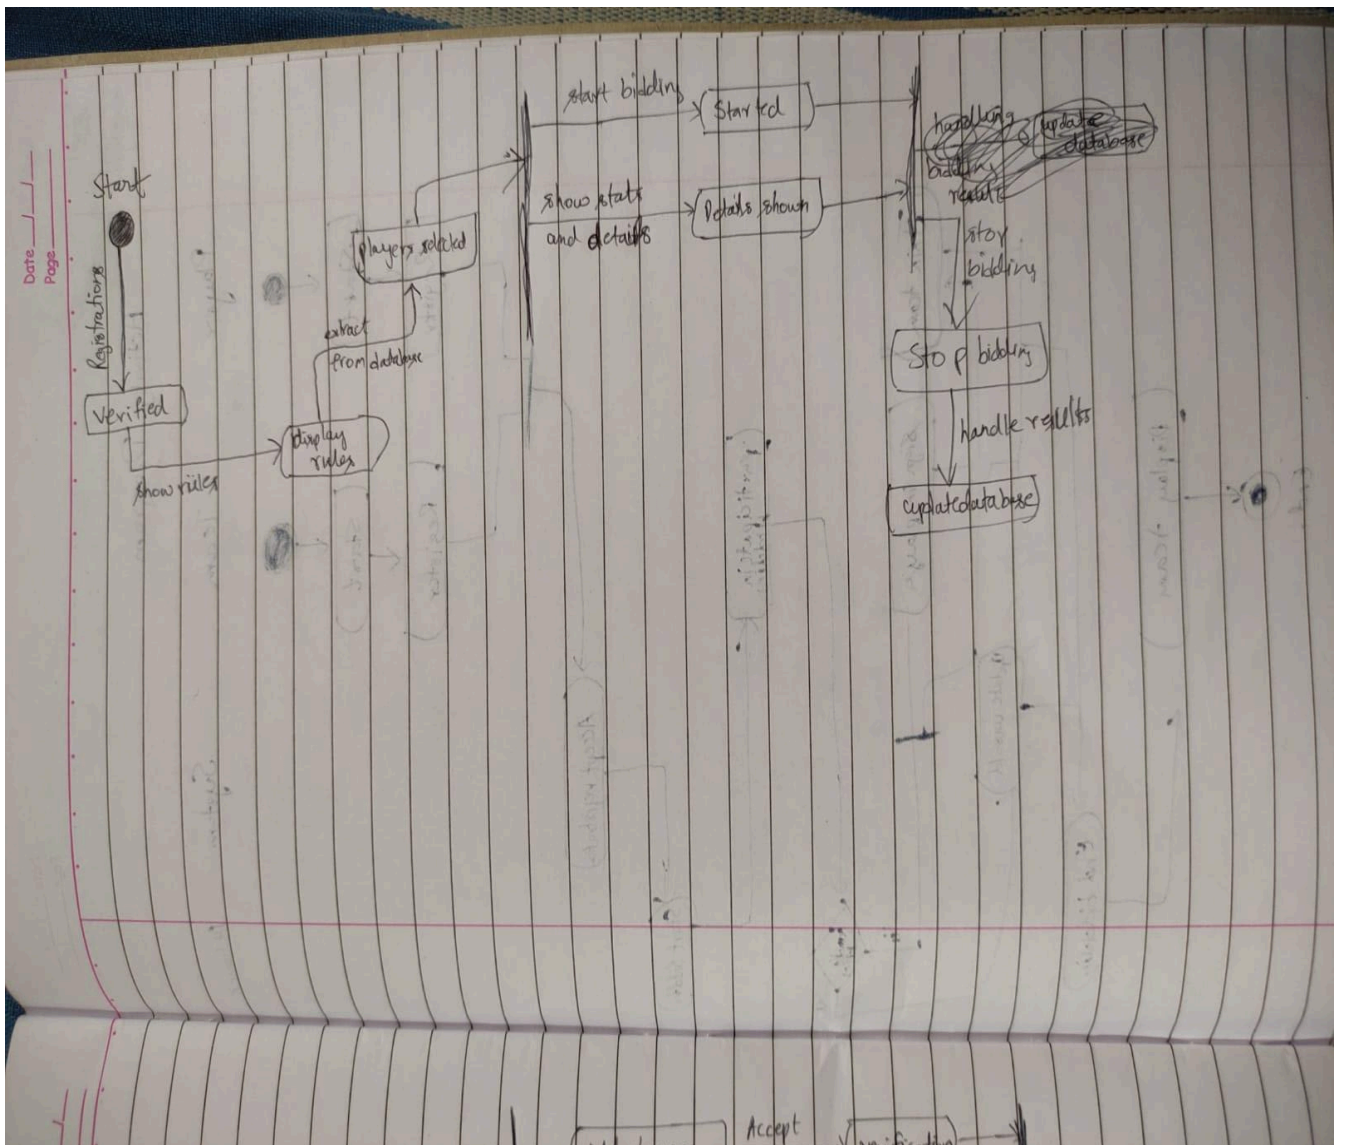 Date
Page
Start
Registrations
Verified
show rules
display
rules
extract
from database
players selected
start bidding
Started
show stats
and details
Details shown
handling
bidding
result
update
database
stop
bidding
Stop bidding
handle results
updatedatabase
Accept